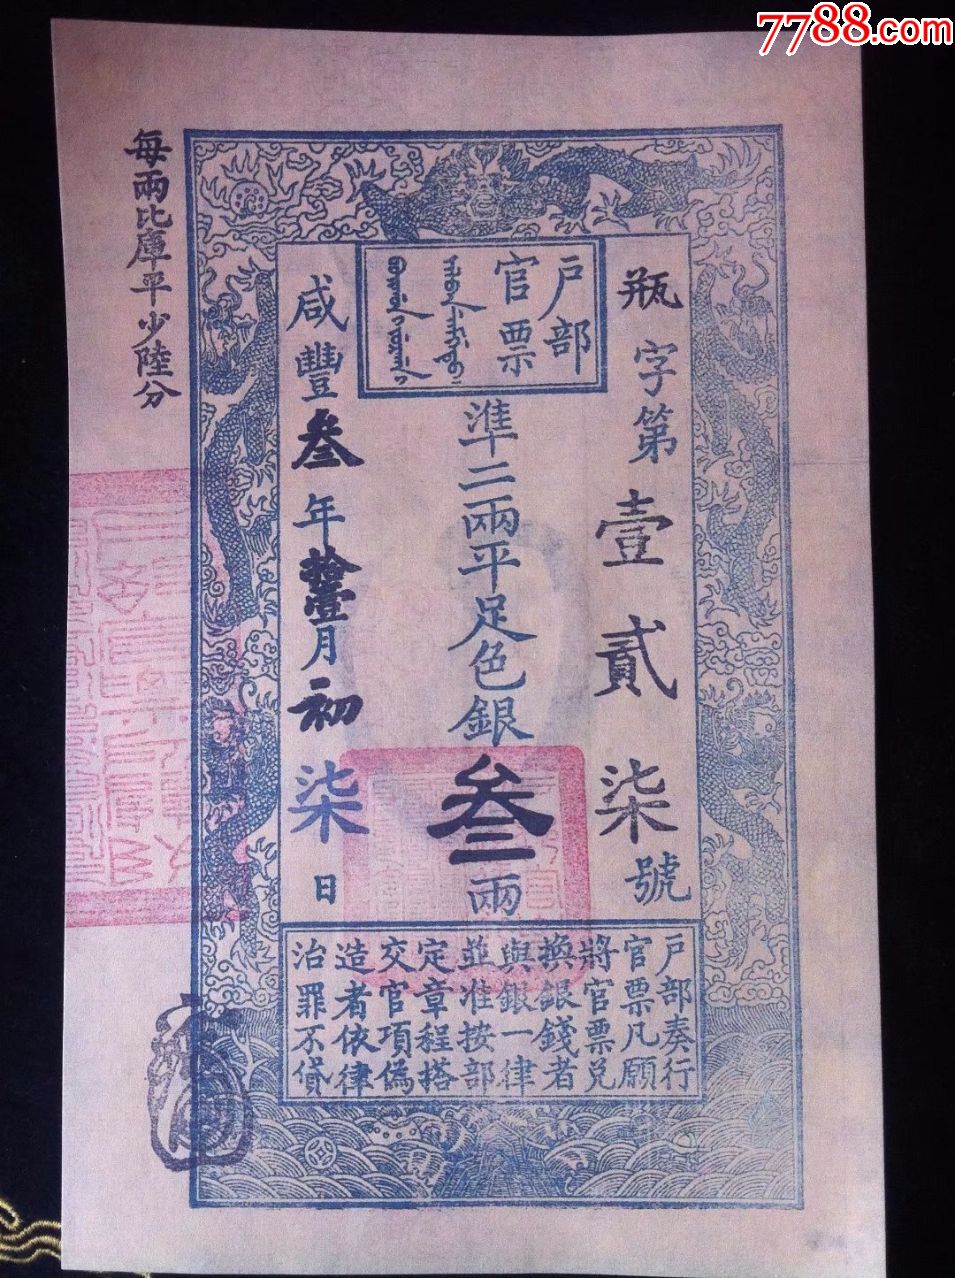 7788.com
户部
官票
瓶字第壹貳柒號
準二兩平足色銀叁兩
咸豐叁年拾壹月初柒日
每兩比庫平少陸分
户部奏行
官票凡願
將官票兌
換銀錢者
與銀一律
並准按部
定章程搭
交官項偽
造者依律
治罪不貸